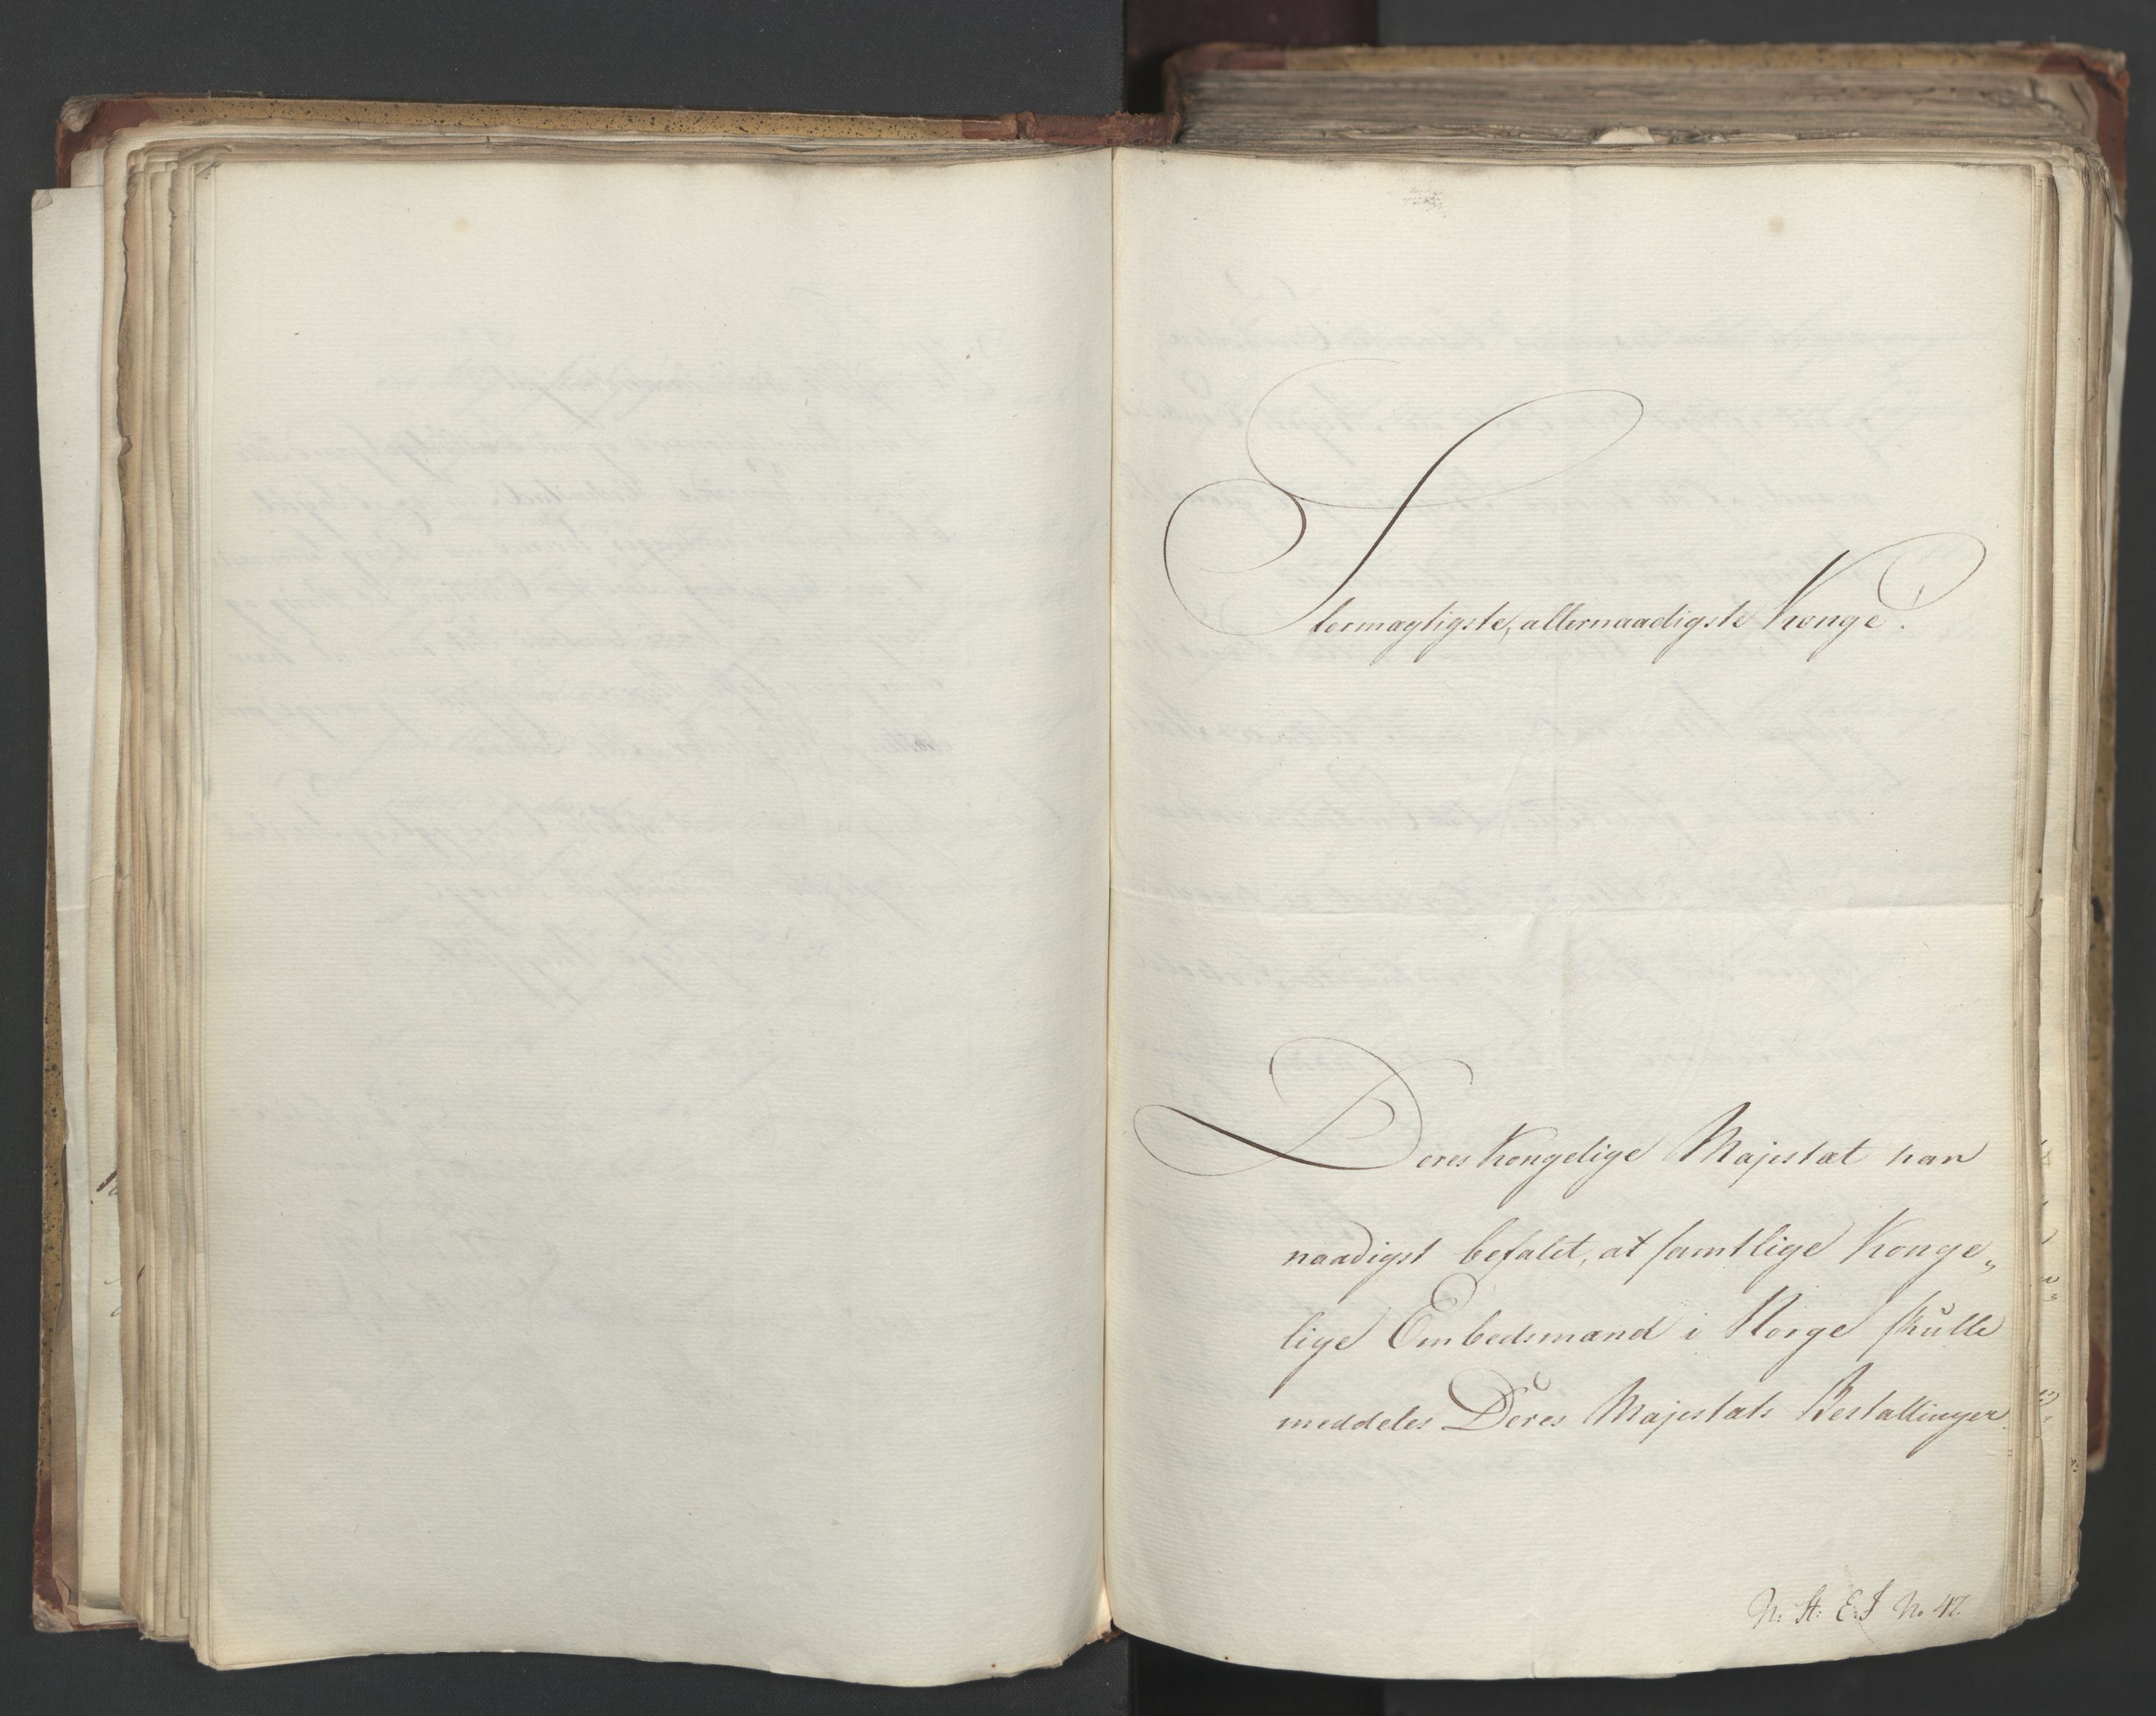 Stormægtigste, allernaadigste Konge!
Deres Kongelige Majestæt har
naadigst befalet, at samtlige Konge„
lige Embedsmænd i Norge skulle
meddeles Deres Majestæts Bestallinger
N: St: E: J No 47.